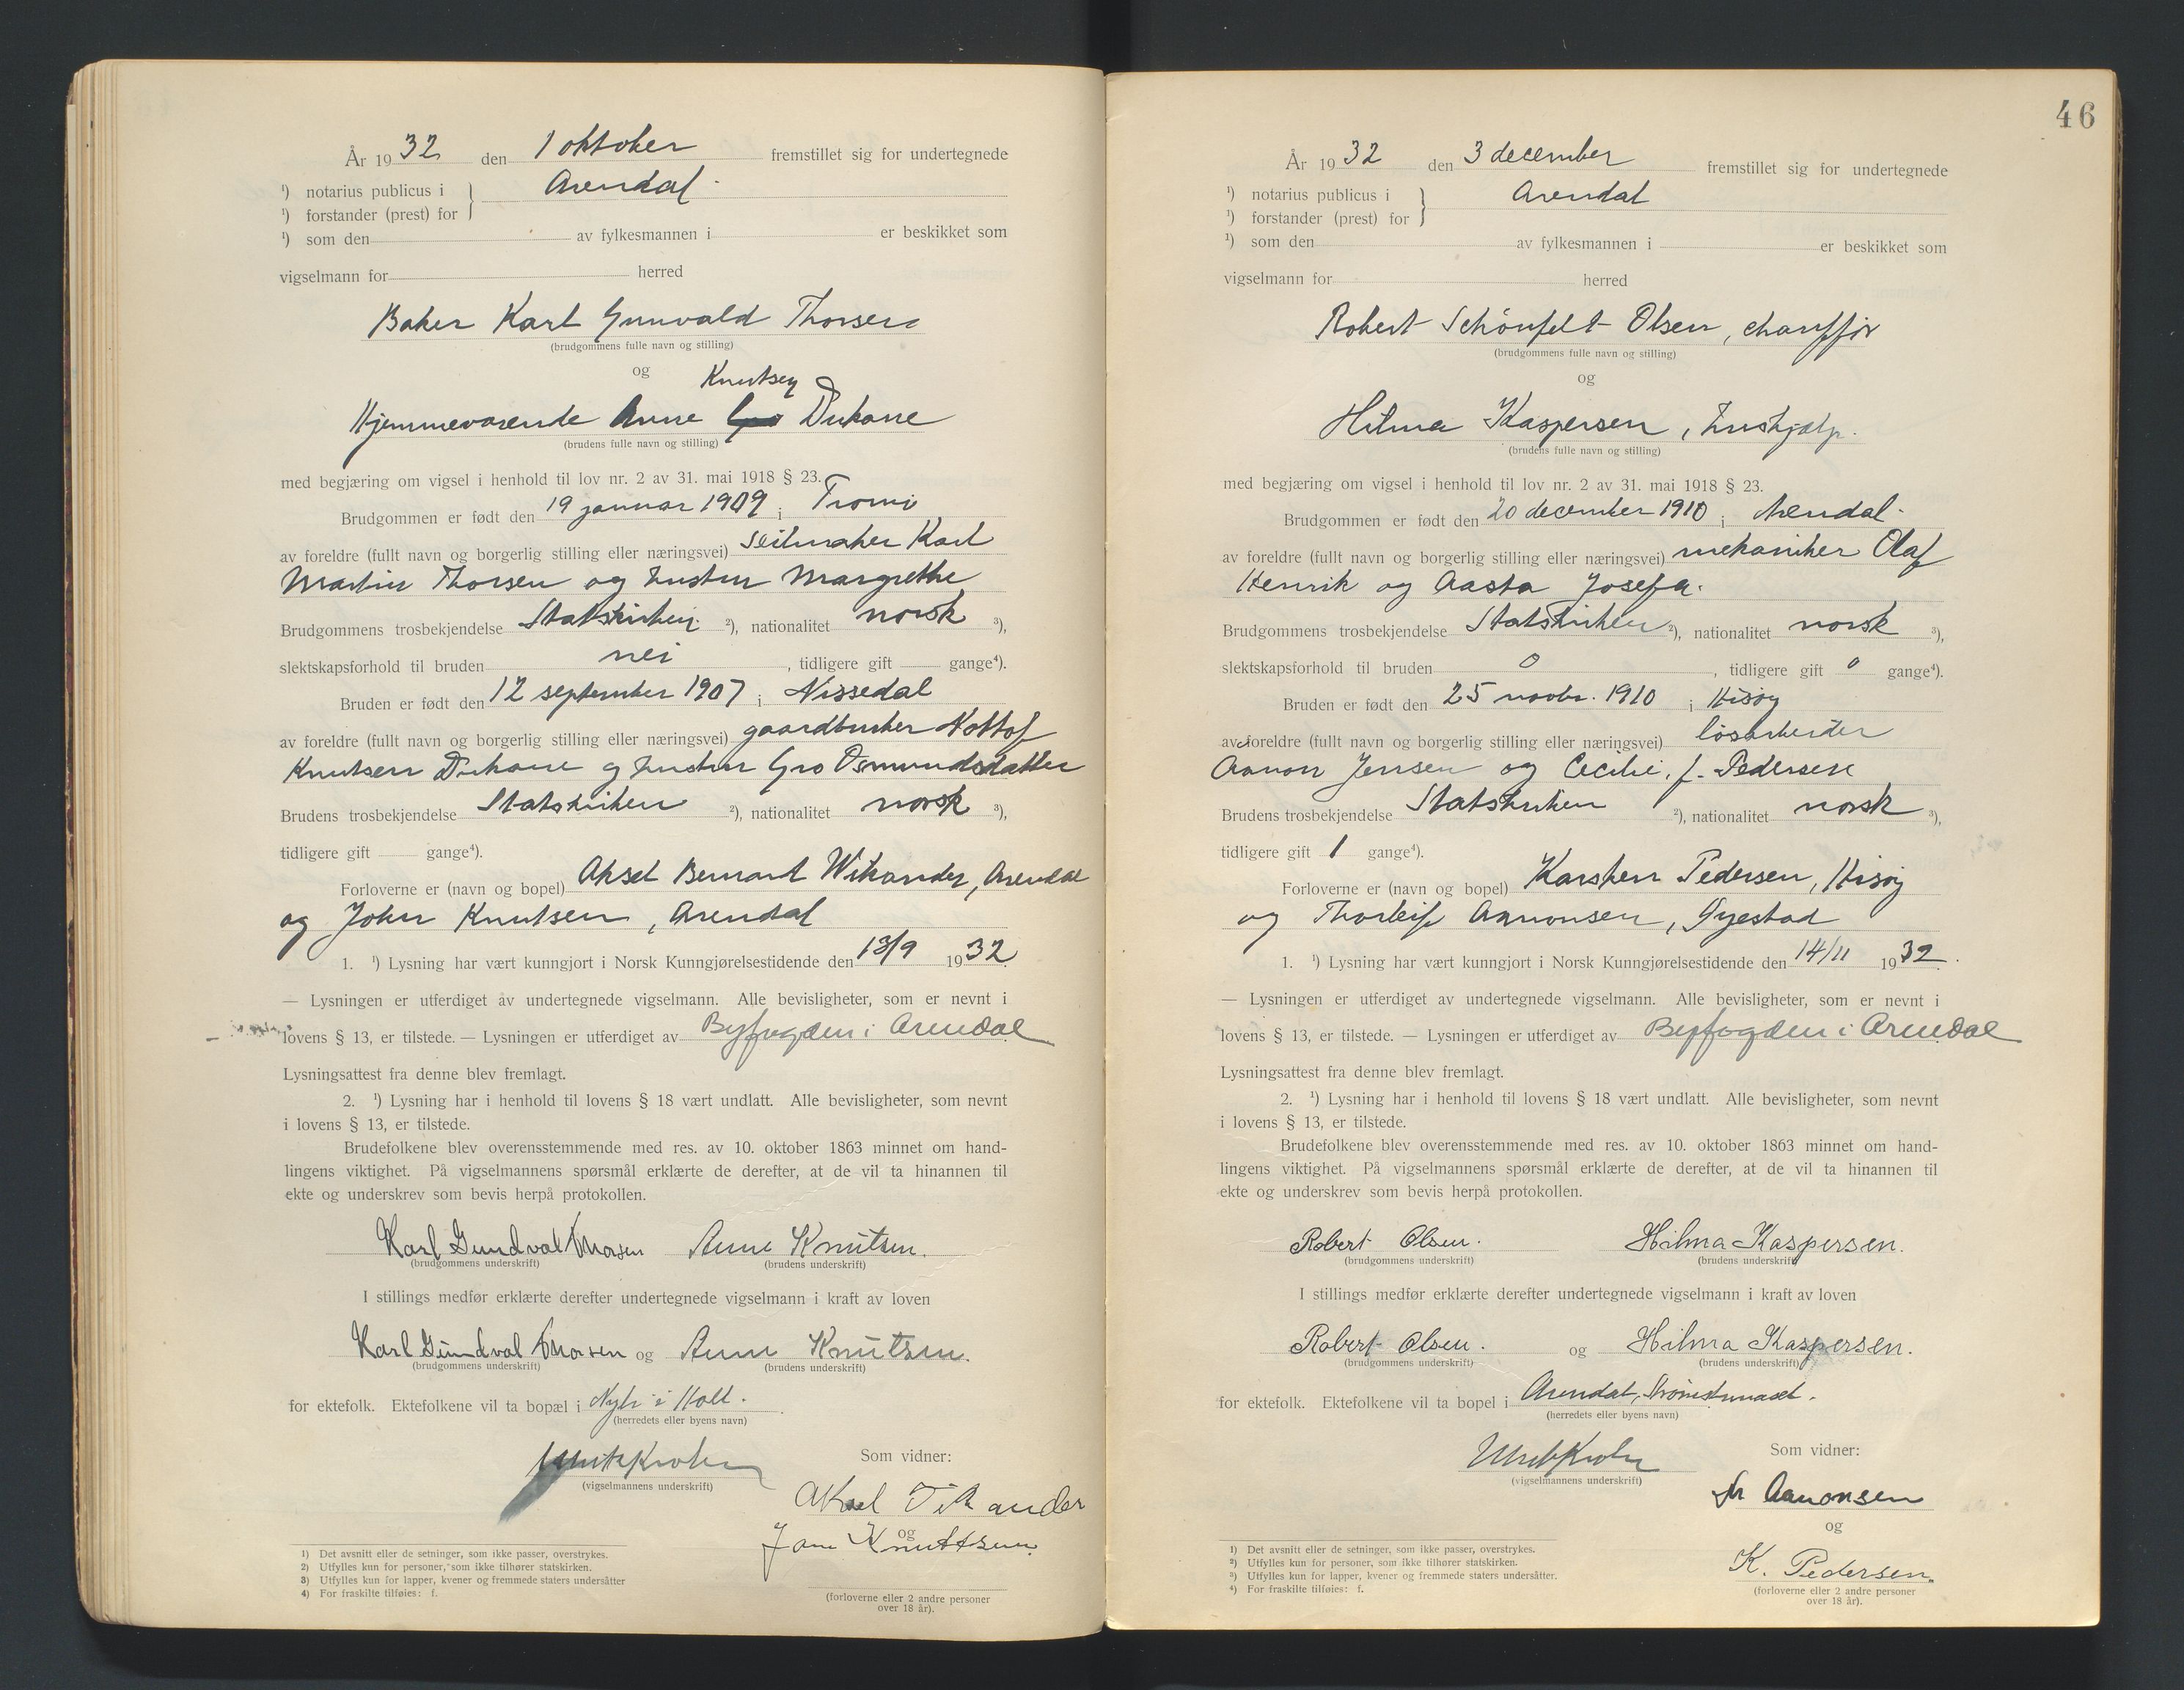 År 1932 den 1 oktober fremstillet sig for undertegnede
¹) notarius publicus i } Arendal.
¹) forstander (prest) for
¹) som den av fylkesmannen i er beskikket som
vigselmann for herred
Baker Karl Gunvald Thorsen
(brudgommens fulle navn og stilling)
og Knutsen
Hjemmeværende Anne Gro Dukane
(brudens fulle navn og stilling)
med begjæring om vigsel i henhold til lov nr. 2 av 31. mai 1918 § 23.
Brudgommen er født den 19 januar 1909 i Tromø
av foreldre (fullt navn og borgerlig stilling eller næringsvei) seilmaker Karl
Martin Thorsen og hustru Margrethe
Brudgommens trosbekjendelse Statskirken ²), nationalitet norsk ³),
slektskapsforhold til bruden nei , tidligere gift gange⁴).
Bruden er født den 12 september 1907 i Nissedal
av foreldre (fullt navn og borgerlig stilling eller næringsvei) gaardbruker
Knutsen Dukane og hustru Gro Osmundsdatter
Brudens trosbekjendelse Statskirken ²), nationalitet norsk ³),
tidligere gift gange⁴).
Forloverne er (navn og bopel) Aksel Bernard Wikander, Arendal
og John Knutsen, Arendal
1. ¹) Lysning har vært kunngjort i Norsk Kunngjørelsestidende den 13/9 1932
— Lysningen er utferdiget av undertegnede vigselmann. Alle bevisligheter, som er nevnt i
lovens § 13, er tilstede. — Lysningen er utferdiget av Byfogden i Arendal
Lysningsattest fra denne blev fremlagt.
2. ¹) Lysning har i henhold til lovens § 18 vært undlatt. Alle bevisligheter, som nevnt
i lovens § 13, er tilstede.
Brudefolkene blev overensstemmende med res. av 10. oktober 1863 minnet om hand-
lingens viktighet. På vigselmannens spørsmål erklærte de derefter, at de vil ta hinannen til
ekte og underskrev som bevis herpå protokollen.
Karl Gundval Thorsen Anne Knutsen.
(brudgommens underskrift) (brudens underskrift)
I stillings medfør erklærte derefter undertegnede vigselmann i kraft av loven
Karl Gundval Thorsen og Anne Knutsen.
(brudgommens underskrift) (brudens underskrift)
for ektefolk. Ektefolkene vil ta bopæl i i Holt.
(herredets eller byens navn)
Som vidner:
(vigselmannens underskrift)
Aksel Vikander
og
Knuttsen
1) Det avsnitt eller de setninger, som ikke passer, overstrykes.
2) Utfylles kun for personer, som ikke tilhører statskirken.
3) Utfylles kun for lapper, kvener og fremmede staters undersåtter
4) For fraskilte tilføies: f.
(forloverne eller 2 andre personer
over 18 år).
46
År 1932 den 3 december fremstillet sig for undertegnede
¹) notarius publicus i } Arendal
¹) forstander (prest) for
¹) som den av fylkesmannen i er beskikket som
vigselmann for herred
Robert Schönfelt Olsen, chauffør
(brudgommens fulle navn og stilling)
og
Hilma Kaspersen, hushjælp.
(brudens fulle navn og stilling)
med begjæring om vigsel i henhold til lov nr. 2 av 31. mai 1918 § 23.
Brudgommen er født den 20 december 1910 i Arendal.
av foreldre (fullt navn og borgerlig stilling eller næringsvei) mekaniker Olaf
Henrik og Aasta Josefa.
Brudgommens trosbekjendelse Statskirken ²), nationalitet norsk ³),
slektskapsforhold til bruden 0 , tidligere gift 0 gange⁴).
Bruden er født den 25 novbr. 1910 i Hisøy
av foreldre (fullt navn og borgerlig stilling eller næringsvei) løsarbeider
Aanon Jensen og Cecilie, f. Pedersen
Brudens trosbekjendelse Statskirken ²), nationalitet norsk ³),
tidligere gift 1 gange⁴).
Forloverne er (navn og bopel) Karsten Pedersen, Hisøy
og Thorleif Aanonsen, Øyestad
1. ¹) Lysning har vært kunngjort i Norsk Kunngjørelsestidende den 14/11 1932.
— Lysningen er utferdiget av undertegnede vigselmann. Alle bevisligheter, som er nevnt i
lovens § 13, er tilstede. — Lysningen er utferdiget av Byfogden i Arendal
Lysningsattest fra denne blev fremlagt.
2. ¹) Lysning har i henhold til lovens § 18 vært undlatt. Alle bevisligheter, som nevnt
i lovens § 13, er tilstede.
Brudefolkene blev overensstemmende med res. av 10. oktober 1863 minnet om hand-
lingens viktighet. På vigselmannens spørsmål erklærte de derefter, at de vil ta hinannen til
ekte og underskrev som bevis herpå protokollen.
Robert Olsen. Hilma Kaspersen.
(brudgommens underskrift) (brudens underskrift)
I stillings medfør erklærte derefter undertegnede vigselmann i kraft av loven
Robert Olsen. og Hilma Kaspersen.
(brudgommens underskrift) (brudens underskrift)
for ektefolk. Ektefolkene vil ta bopel i Arendal,
(herredets eller byens navn)
Som vidner:
(vigselmannens underskrift)
Aanonsen
og
K. Pedersen.
1) Det avsnitt eller de setninger, som ikke passer, overstrykes.
2) Utfylles kun for personer, som ikke tilhører statskirken.
3) Utfylles kun for lapper, kvener og fremmede staters undersåtter.
4) For fraskilte tilføies: f.
(forloverne eller 2 andre personer
over 18 år).